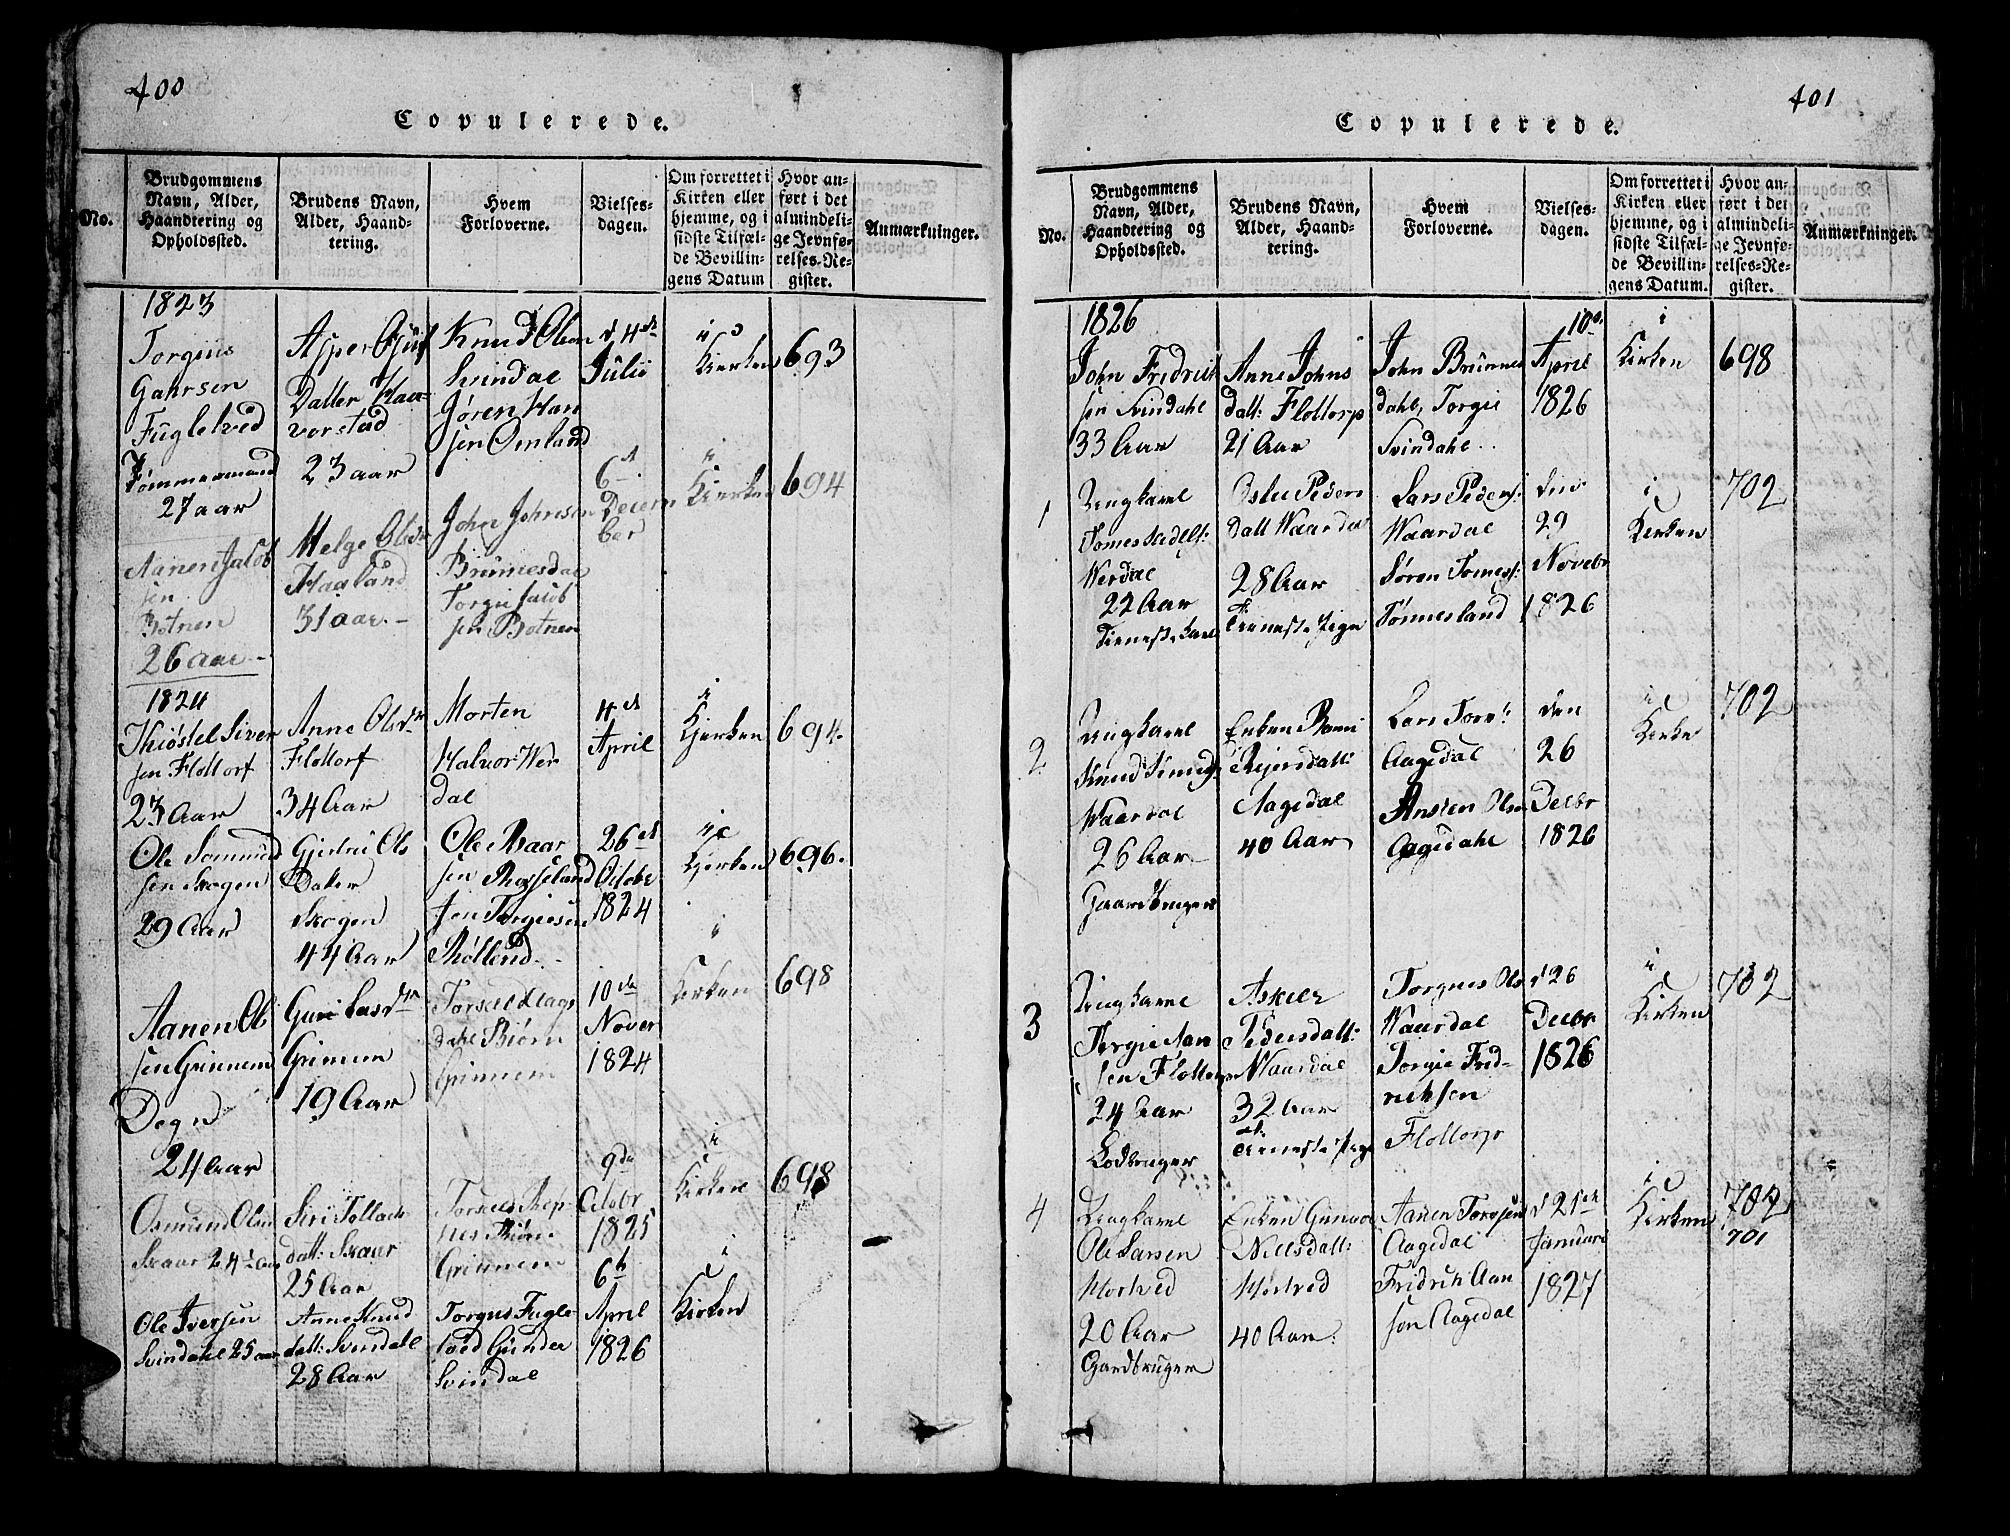 400
Copulerede.
No.
Brudgommens
Navn, Alder,
Haandtering og
Opholdssted.
Brudens Navn,
Alder, Haand-
tering.
Hvem
Forloverne.
Vielses-
dagen.
Om forrettet i
Kirken eller
hjemme, og i
sidste Tilfæl-
de Bevillin-
gens Datum
Hvor an-
ført i det
almindeli-
ge Jevnfø-
relses-Re-
gister.
Anmærkninger.
1823
Torgius
Gahrsen
Fugletved
Tømmermand
27 aar
Datter Haa-
vorstad
23 aar
Knud Olsen
Svindal
Jøren Han
sen Omland
d 4de
Julii
i
Kierken
693
Aanen Jacob
sen
Botnen
26 Aar
Helge Olsdr
Haaland
31 aar.
John Johnsen
Brunesdal
Torgie Jacob
sen Botnen
6te
Decem
ber
i
Kierken
694
1824
Thiøstel Siver
sen Flottorf
23 Aar
Anne Olsdr
Flottorf
34 Aar
Morten
Halvor Wer
dal
4de
April
i
Kjerken
694.
Ole Somund
sen Skogen
29 Aar
Gjertru Ols
Dater
Skogen
44 Aar
Ole Roar
sen Rosseland
Jen Torgiesen
26de
Octobr
1824
i
Kjerken
696.
Aanen Ol
sen Grinnem
Degn
24 Aar
Guri Lasdtr
Grimem
19 Aar
Torkel Klags
dahl Biørn
Grinnem
10de
Nover
1824
i
Kirken
698
Osmund Olsen
Skaar 24 Aar
Siri Tollack
datt: Skaar
25 Aar
Grinnem
9de
Octobr
1825
i
Kirken
698
Ole Iversen
Svindahl 25 aar
Anne Knud
datt: Svindall
28 Aar
Torgus Fugle
tved Gunder
Svindal
6te
April
1826
i
Kirken
401
Copulerede.
No.
Brudgommens
Navn, Alder,
Haandtering og
Opholdssted.
Brudens Navn,
Alder, Haand-
tering.
Hvem
Forloverne.
Vielses-
dagen.
Om forrettet i
Kirken eller
hjemme, og i
sidste Tilfæl-
de Bevillin-
gens Datum.
Hvor an-
ført i det
almindeli-
ge Jevnfø-
relses-Re-
gister.
Anmærkninger.
1826
John Fredrick
sen Svindahl
33 Aar
Anne Johns
datt: Flottorp
21 Aar
John Brunnes
dahl, Torgie
Svindahl
10de
April
1826
i
Kirken
698
1
Ungkarl
Werdal
22 Aar
Tienestekarl
Oslu Peders
Datt Waardal
28 Aar
Tienestepige
Lars Peders:
Waardal
Søren Tomess:
Tønnesland
den
29
Novebr
1826
i
Kerken
702
2
Ungkarl
Waardal
26 Aar
Gaardbruger
Enken
Reiersdatt:
Aagedal
40 Aar
Lars Tors:
Aagedal
Ansten Olsen
Aagedahl
den
26
Decbr
1826
i
Kirke
702
3
Ungkarl
Torgie Aan
sen Flottorp
24 Aar
Lodbruger
Askelr
Pedersdatt:
Waardal
32 Aar
Tienestepige
Torgnes Ols
Waardal
Torgie Fred-
ricksen
Flottorp
d 26
Decbr
1826
i
Kirken
702
4
Ungkarl
Ole Larsen
Hortved
20 Aar
Gardbruger
Enken Gunvor
Nielsdatt:
Hortved
40 Aar.
Aanen Torgsen
Aagedal
Fridrich Aan
sen Aagedal
d 21de
Januari
1827
i
Kirken
702
701